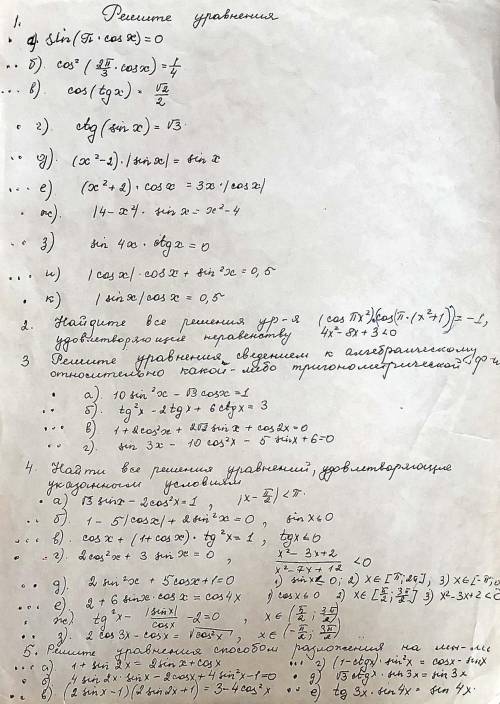 Решите уравнения
1.
а). sin(π·cosx)=0
б). cos²(2π/3·cosx)=1/4
в). cos(tgx)=√2/2
г). ctg(sinx)=√3
д). (x²-2)·|sinx|=sinx
е). (x²+2)·cosx=3x·|cosx|
ж). |4-x²|·sinx=x²-4
з). sin4x·ctgx=0
и). |cosx|·cosx+sin²x=0,5
к). |sinx|cosx=0,5
2. Найдите все решения ур-я (cosπx²)(cos(π·(x²+1))=-1,
удовлетворяющие неравенству 4x²-8x+3<0
3 Решите уравнения сведением к алгебраическому
относительно какой-либо тригонометрической ф-и
а). 10sin²x-√3cosx=1
б). tg²x-2tgx+6ctgx=3
в). 1+2cos²x+2√2sinx+cos2x=0
г). sin3x-10cos²x-5sinx+6=0
4. Найти все решения уравнений, удовлетворяющие
указанным условиям
а) √3sinx-2cos²x=1, |x-π/2|<π
б). 1-5|cosx|+2sin²x=0, sinx≤0
в). cosx+(1+cosx)·tg²x=1, tgx≤0
г). 2cos²x+3sinx=0, (x²-3x+2)/(x²-7x+12)<0
д). 2sin²x+5cosx+1=0 1) sinx≤0; 2) x∈[π;2π], 3) x∈[-π;0
е). 2+6sinx·cosx=cos4x 1) cosx≤0 2) x∈[π/2;3π/2] 3) x²-3x+2<0
ж). tg²x-|sinx|/cosx-2=0, x∈(π/2;3π/2)
з). 2cos3x-cosx=√cos²x, x∈(-π/2;3π/2)
5. Решите уравнения способом разложения на мн-ли
а) 1+sin2x=2sinx+cosx г) (1-ctgx)·sin²x=cosx-sinx
б) 4sin2x·sinx-2cosx+4sin²x-1=0 д) √3ctgx·sin3x=sin3x
в) (2sinx-1)(2sin2x+1)=3-4cos²x е) tg3x·sin4x=sin4x